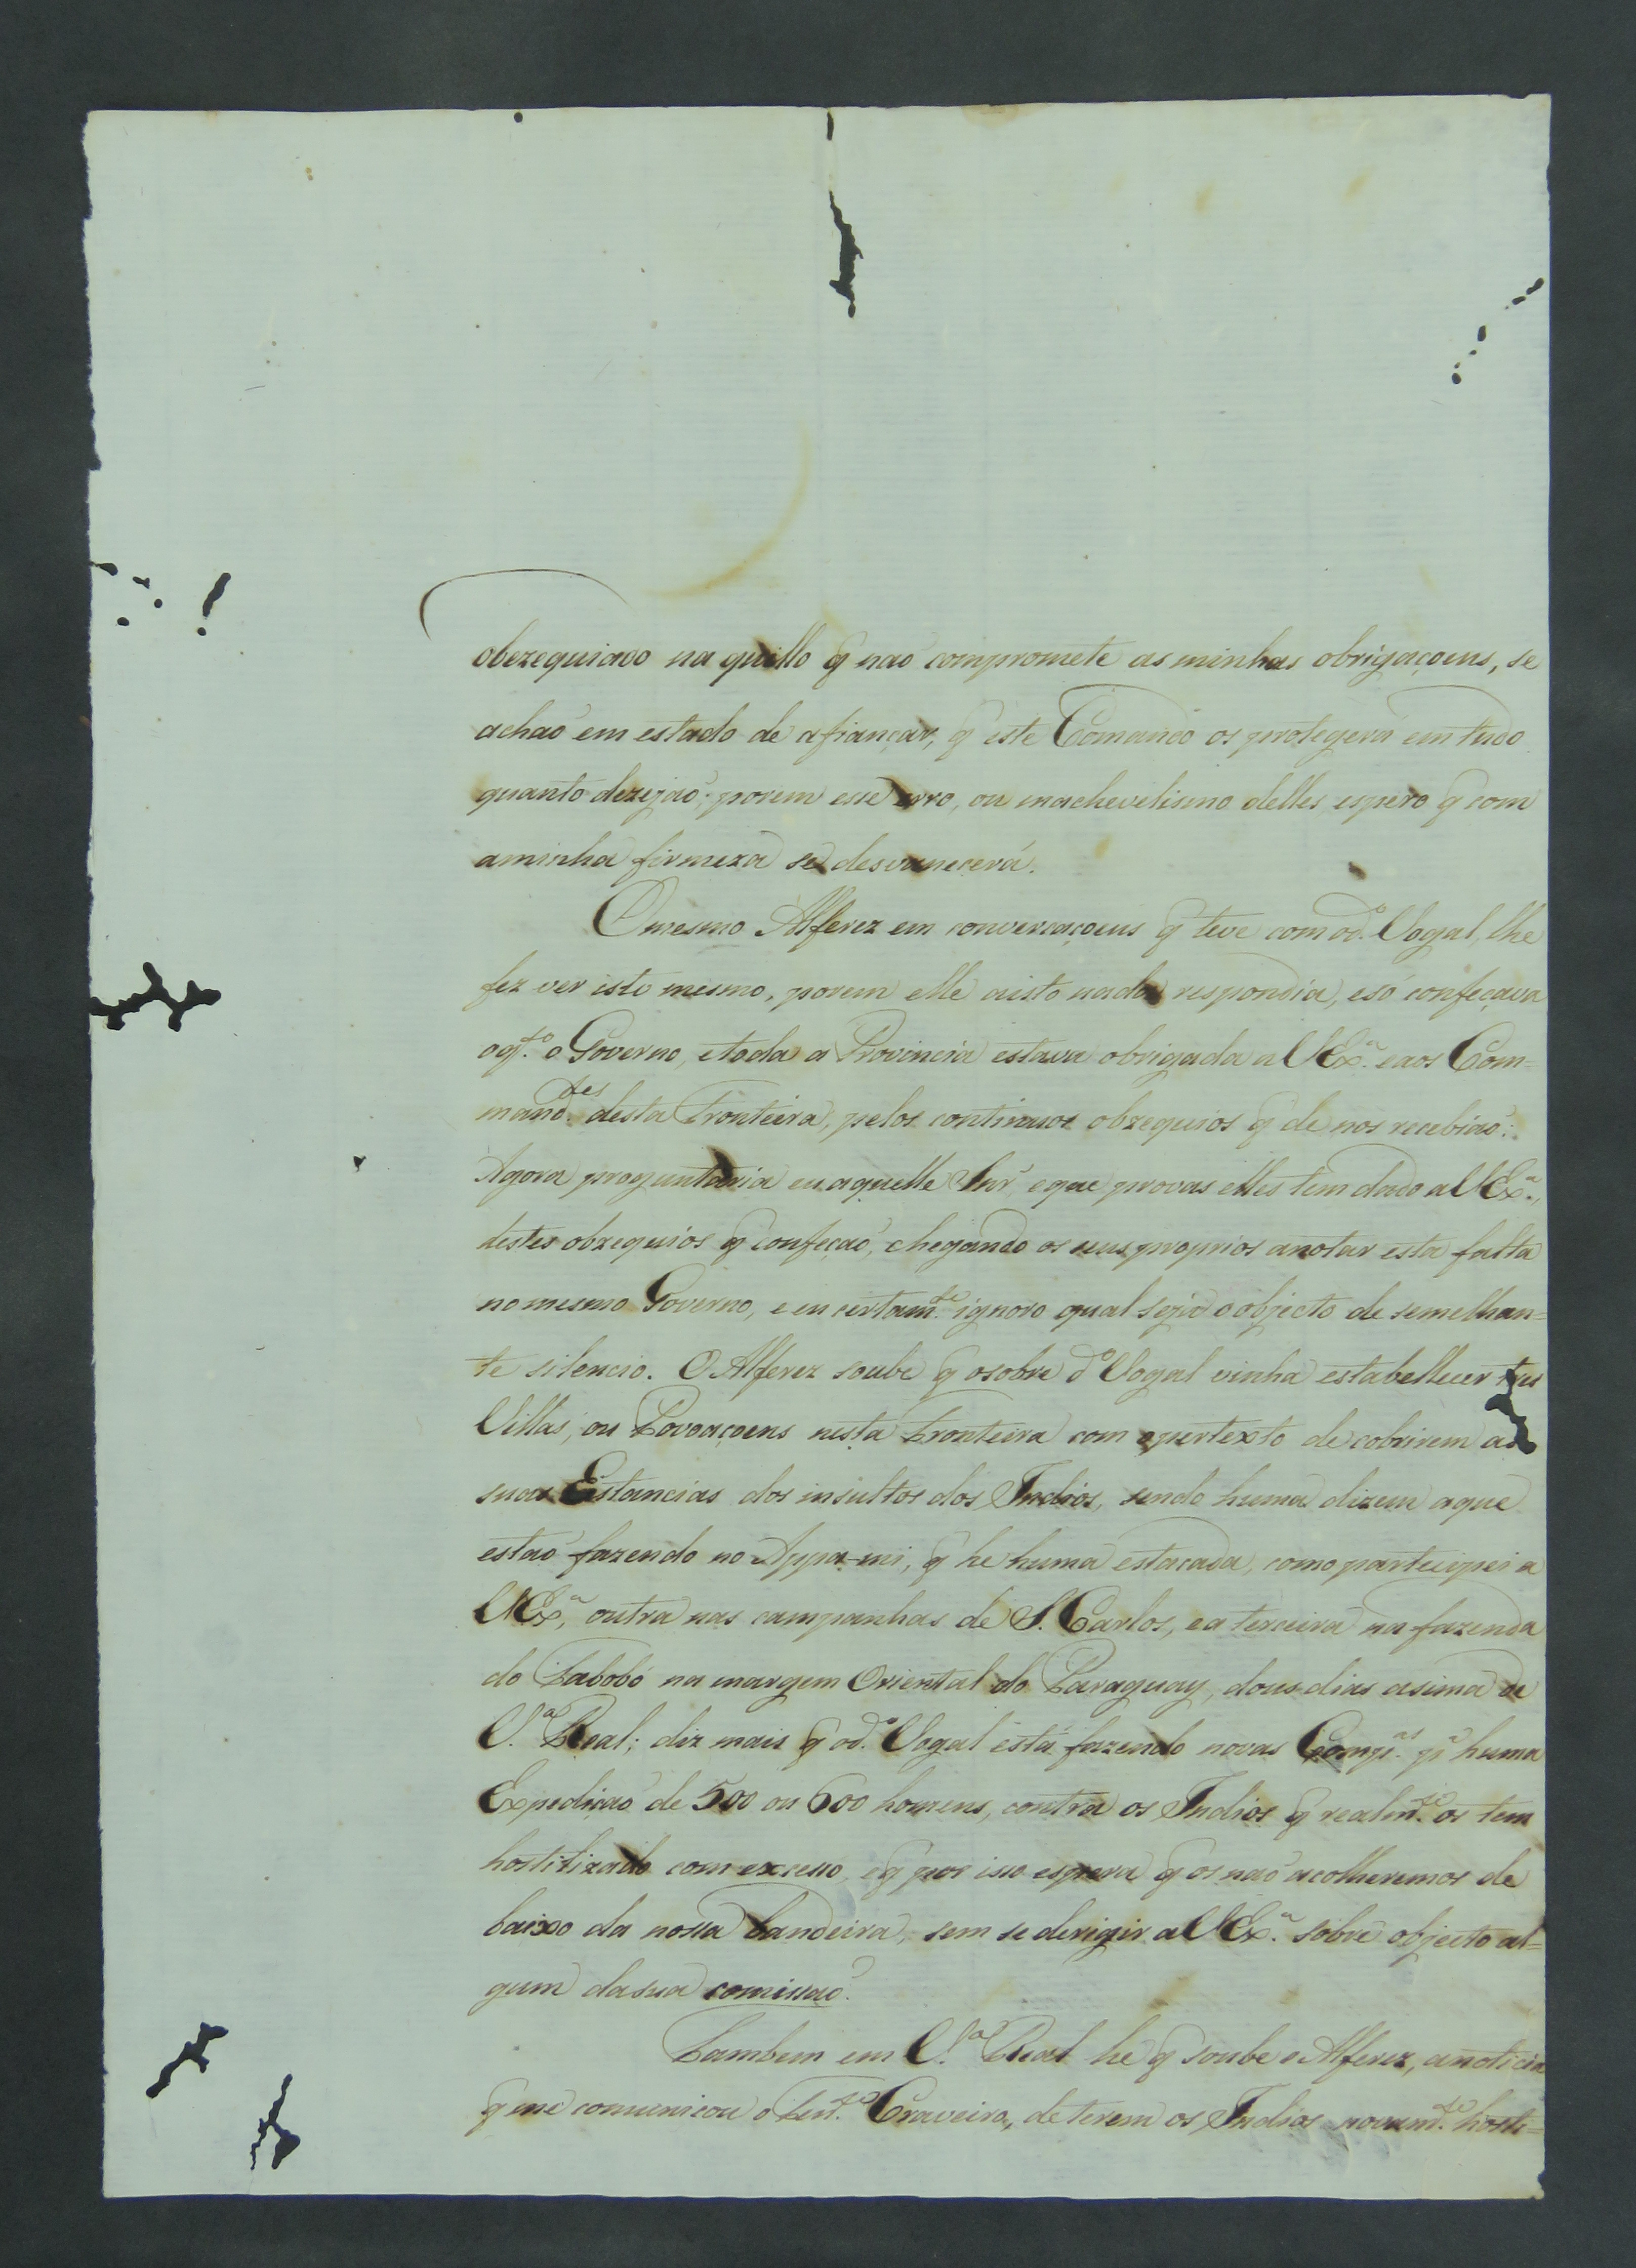 obezequiado na quillo q̃ naõ compromete as minhas obrigaçoens, se
achaõ em estado de afiançar, q̃ este Comando os protegerá em tudo
quanto dezejaõ: porem esse erro, ou machevilismo delles espero q̃ com
aminha firmeza se desvanecerá.
Omesmo Alferez em conversaçoens q̃ teve com od.º Vogal, lhe
fez ver isto mesmo, porem elle aisto nada respondia, esó confeçava
oq.to o Governo, etoda a Provincia estava obrigada a VEx.ª eaos Com=
mand.tes desta Fronteira, pelos continuos obzequios q̃ de nos recebiaõ:
Agora proguntaria eu aquelle Snr̃ eque provas elles tem dado a VEx.ª,
destes obzequios q̃ confeçaõ, chegando os seus proprios anotar esta falta
no mesmo Governo, e eu certam.te ignoro qual seja o objecto de semelhan=
te silencio. O Alferez soube q̃ osobre d.º Vogal vinha estabellecer tres
Villas, ou Povoaçoens nesta Fronteira com opertexto de cobrirem as
suas Estancias dos insultos dos Indios, sendo huma dizem aque
estaõ fazendo no Appa-mi, q̃ he huma estacada, como partecipei a
VEx.ª, outra nas campanhas de S. Carlos, ea terceira na fazenda
do Tabobó na margem Oriental do Paraguay, dous dias asima de
V.ª Real; diz mais q̃ od.º Vogal está fazendo novas Comp.as p.ª huma
Expediçaõ de 500 ou 600 homens, contra os Indios q̃ realm.te os tem
hostilizado com excesso, eq̃ por isso espera q̃ os naõ acolheremos de
baixo da nossa bandeira, sem se derigir a VEx.ª sobre objecto al=
gum dasua comissaõ.
Tambem em V.ª Real he q̃ soube o Alferez, anoticia
q̃ me comunicou o Ten.te Craveiro, de terem os Indios novam.te hosti=